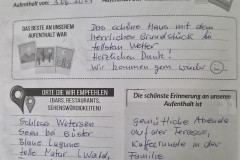 Aufenthalt vom
DAS BESTE AN UNSEREM
AUFENTHALT WAR
Das schöne Haus mit dem
herrlichen Grundstück bei
tollsten Wetter
Herzlichen Dank!
Wir kommen gern wieder
ORTE DIE WIR EMPFEHLEN
(BARS, RESTAURANTS,
SEHENSWÜRDIGKEITEN)
Schloss
See bei
Blaue Lagune
tolle Natur (Wald,
Die schönste Erinnerung an unseren
Aufenthalt ist
gemütliche Abende
auf der Terrasse,
Kaffeerunde in der
Familie